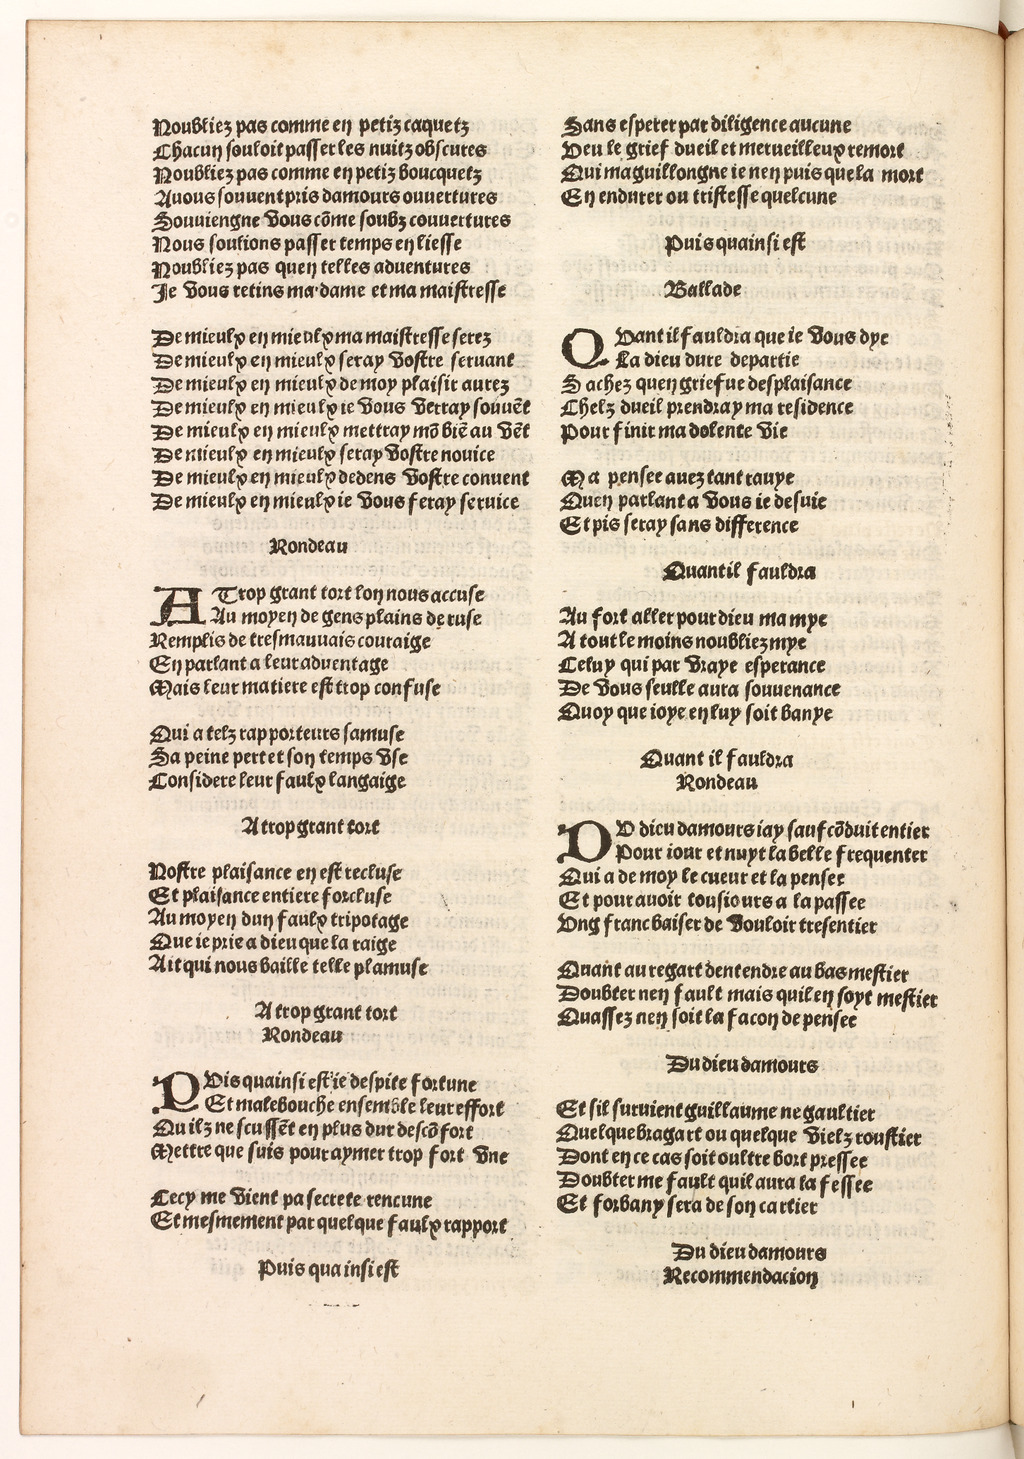 Noubliez pas comme en petiz caquetz
Chacun souloit passer les nuitz obscures
Noubliez pas comme en petiz boucquetz
Avous souvent pris damours ouvertures
Souviengne vous cõme soubz couvertures
Nous soulions passer temps en liesse
Noubliez pas quen telles adventures
Je vous retins ma dame et ma maistresse
De mieulx en mieulx ma maistresse serez
De mieulx en mieulx seray vostre servant
De mieulx en mieulx de moy plaisir aurez
De mieulx en mieulx ie vous verray souvẽt
De mieulx en mieulx mettray mõ biẽ au vẽt
De mieulx en mieulx seray vostre novice
De mieulx en mieulx dedens vostre convent
De mieulx en mieulx ie vous feray service
Rondeau
A Trop grant tort lon nous accuse
Au moyen de gens plains de ruse
Remplis de tresmauvais couraige
En parlant a leur adventage
Mais leur matiere est trop confuse
Qui a telz rapporteurs samuse
Sa peine pert et son temps vse
Considere leur faulx langaige
A trop grant tort
Nostre plaisance en est recluse
Et plaisance entiere forcluse
Au moyen dun faulx tripotage
Que ie prie a dieu que la raige
Ait qui nous baille telle plamuse
A trop grant tort
Rondeau
PVis quainsi est ie despite fortune
Et malebouche ensemble leur effort
Quilz ne scussẽt en plus dur descõfort
Mettre que suis pour aymer trop fort vne
Cecy me vient pa secrete rencune
Et mesmement par quelque faulx rapport
Puis quainsi est
Sans esperer par diligence aucune
Veu le grief dueil et merveilleux remort
Qui maguillongne ie nen puis que la mort
En endurer ou tristesse quelcune
Puis quainsi est
Ballade
QVant il fauldra que ie vous dye
La dieu dure departie
Sachez quen griefue desplaisance
Chelz dueil prendray ma residence
Pour finir ma dolente vie
Ma pensee avez tant ravye
Quen parlant a vous ie desvie
Et pis seray sans difference
Quant il fauldra
Au fort aller pour dieu ma mye
A tout le moins noubliez mye
Celuy qui par vraye esperance
De vous seulle aura souvenance
Quoy que ioye en luy soit banye
Quant il fauldra
Rondeau
DV dieu damours iay sauf cõduit entier
Pour iour et nuyt la belle frequenter
Qui a de moy le cueur et la pensee
Et pour avoir tousiours a la passee
Vng franc baiser de vouloir tresentier
Quant au regart dentendre au bas mestier
Doubter nen fault mais quil en soyt mestier
Quassez nen soit la facon de pensee
Du dieu damours
Et sil survient guillaume ne gaultier
Quelque bragart ou quelque vielz roustier
Dont en ce cas soit oultre bort pressee
Doubter me fault quil aura la fessee
Et forbany sera de son cartier
Du dieu damours
Recommendacion